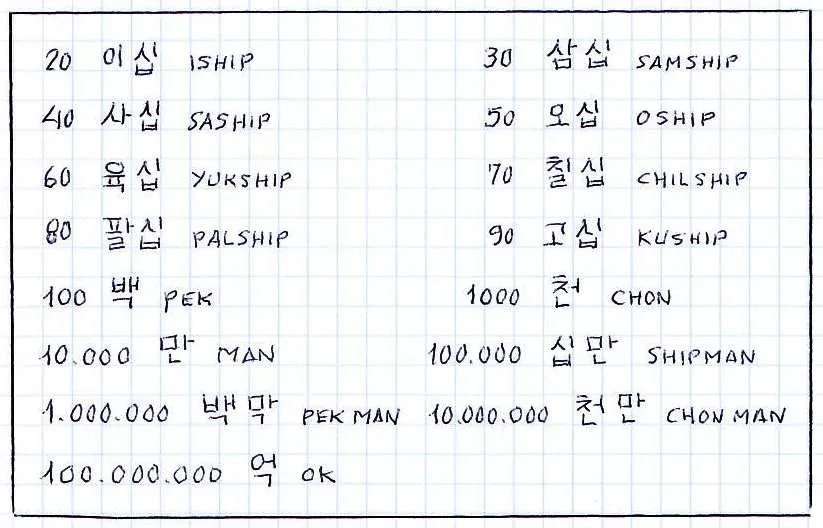 20 이십 ISHIP 30 삼십 SAMSHIP
40 사십 SASHIP 50 오십 OSHIP
60 육십 YUKSHIP 70 칠십 CHILSHIP
80 팔십 PALSHIP 90 고십 KUSHIP
100 백 PEK 1000 천 CHON
10.000 만 MAN 100.000 십만 SHIPMAN
1.000.000 백막 PEK MAN 10.000.000 천만 CHON MAN
100.000.000 억 OK